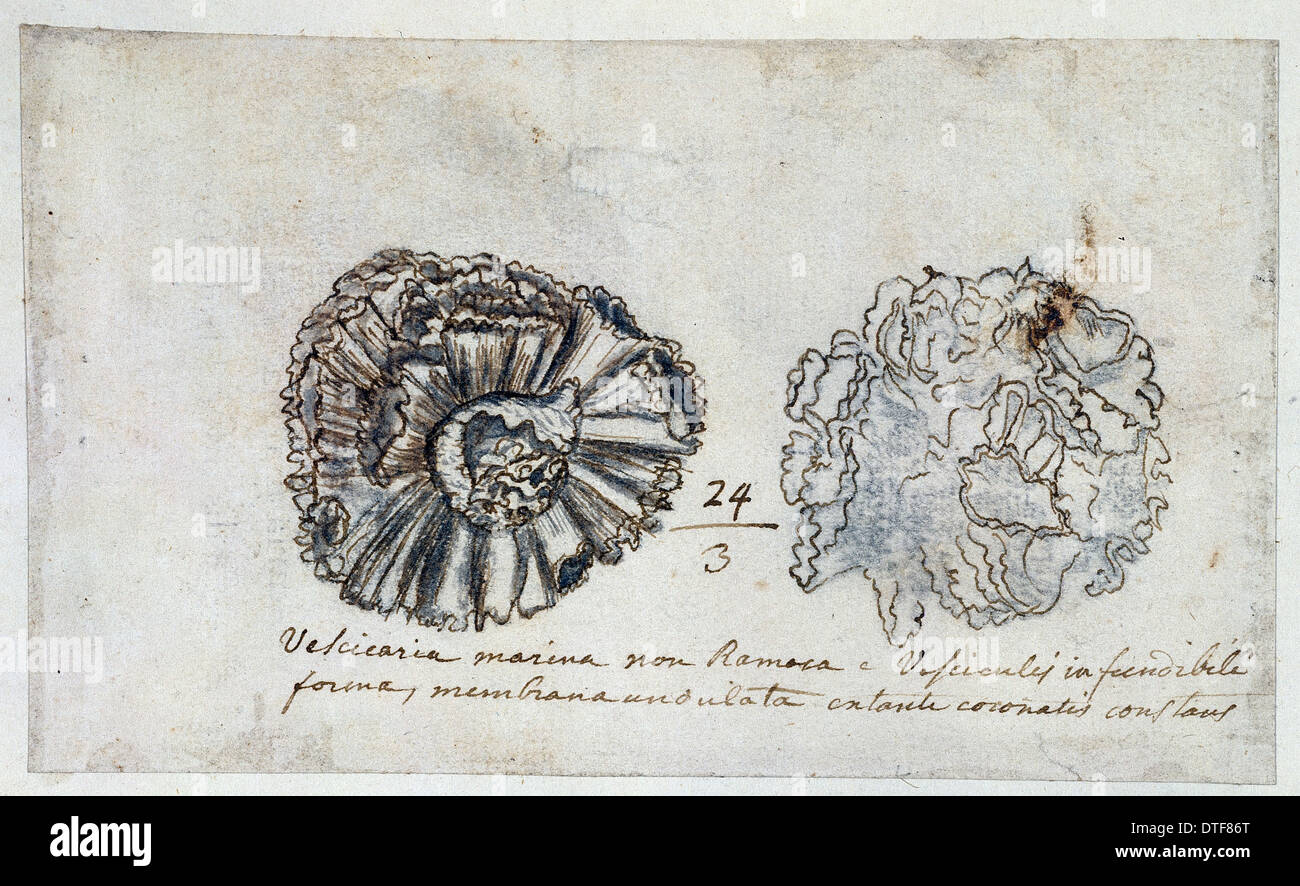 24
3
Vescicaria marina non Ramosa e Vesiculis in fundibili
forma, membrana undulata extante coronatis constans
alamy
alamy
Image ID: DTF86T
www.alamy.com